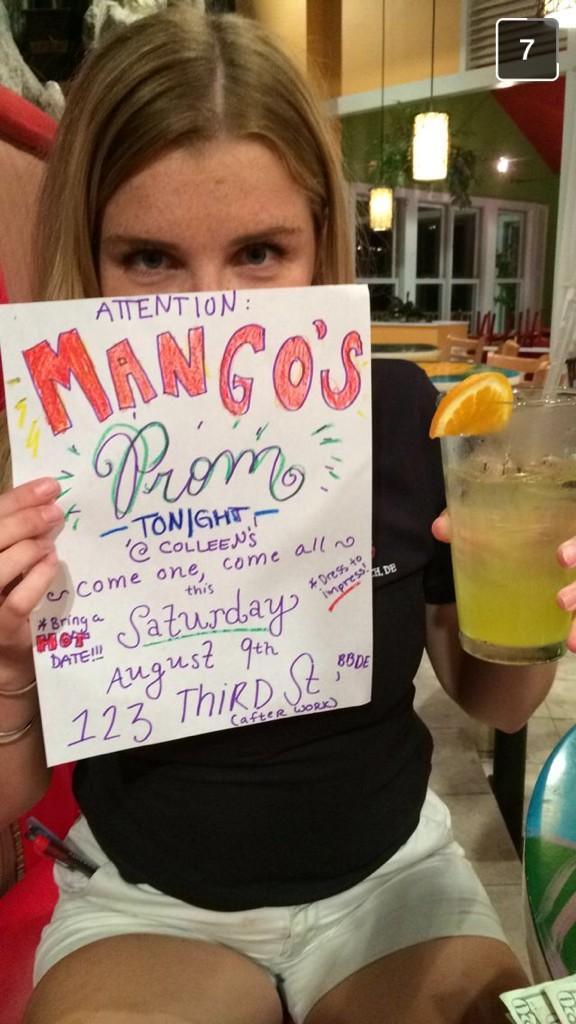 7
ATTENTION:
MANGO'S
Prom
- TONIGHT -
@ COLLEEN'S
~ come one, come all ~
this
*Bring a
HOT
DATE!!!
Saturday
*Dress to
impress!
August 9th
123 THIRD St, BBDE
(after work)
CH, DE